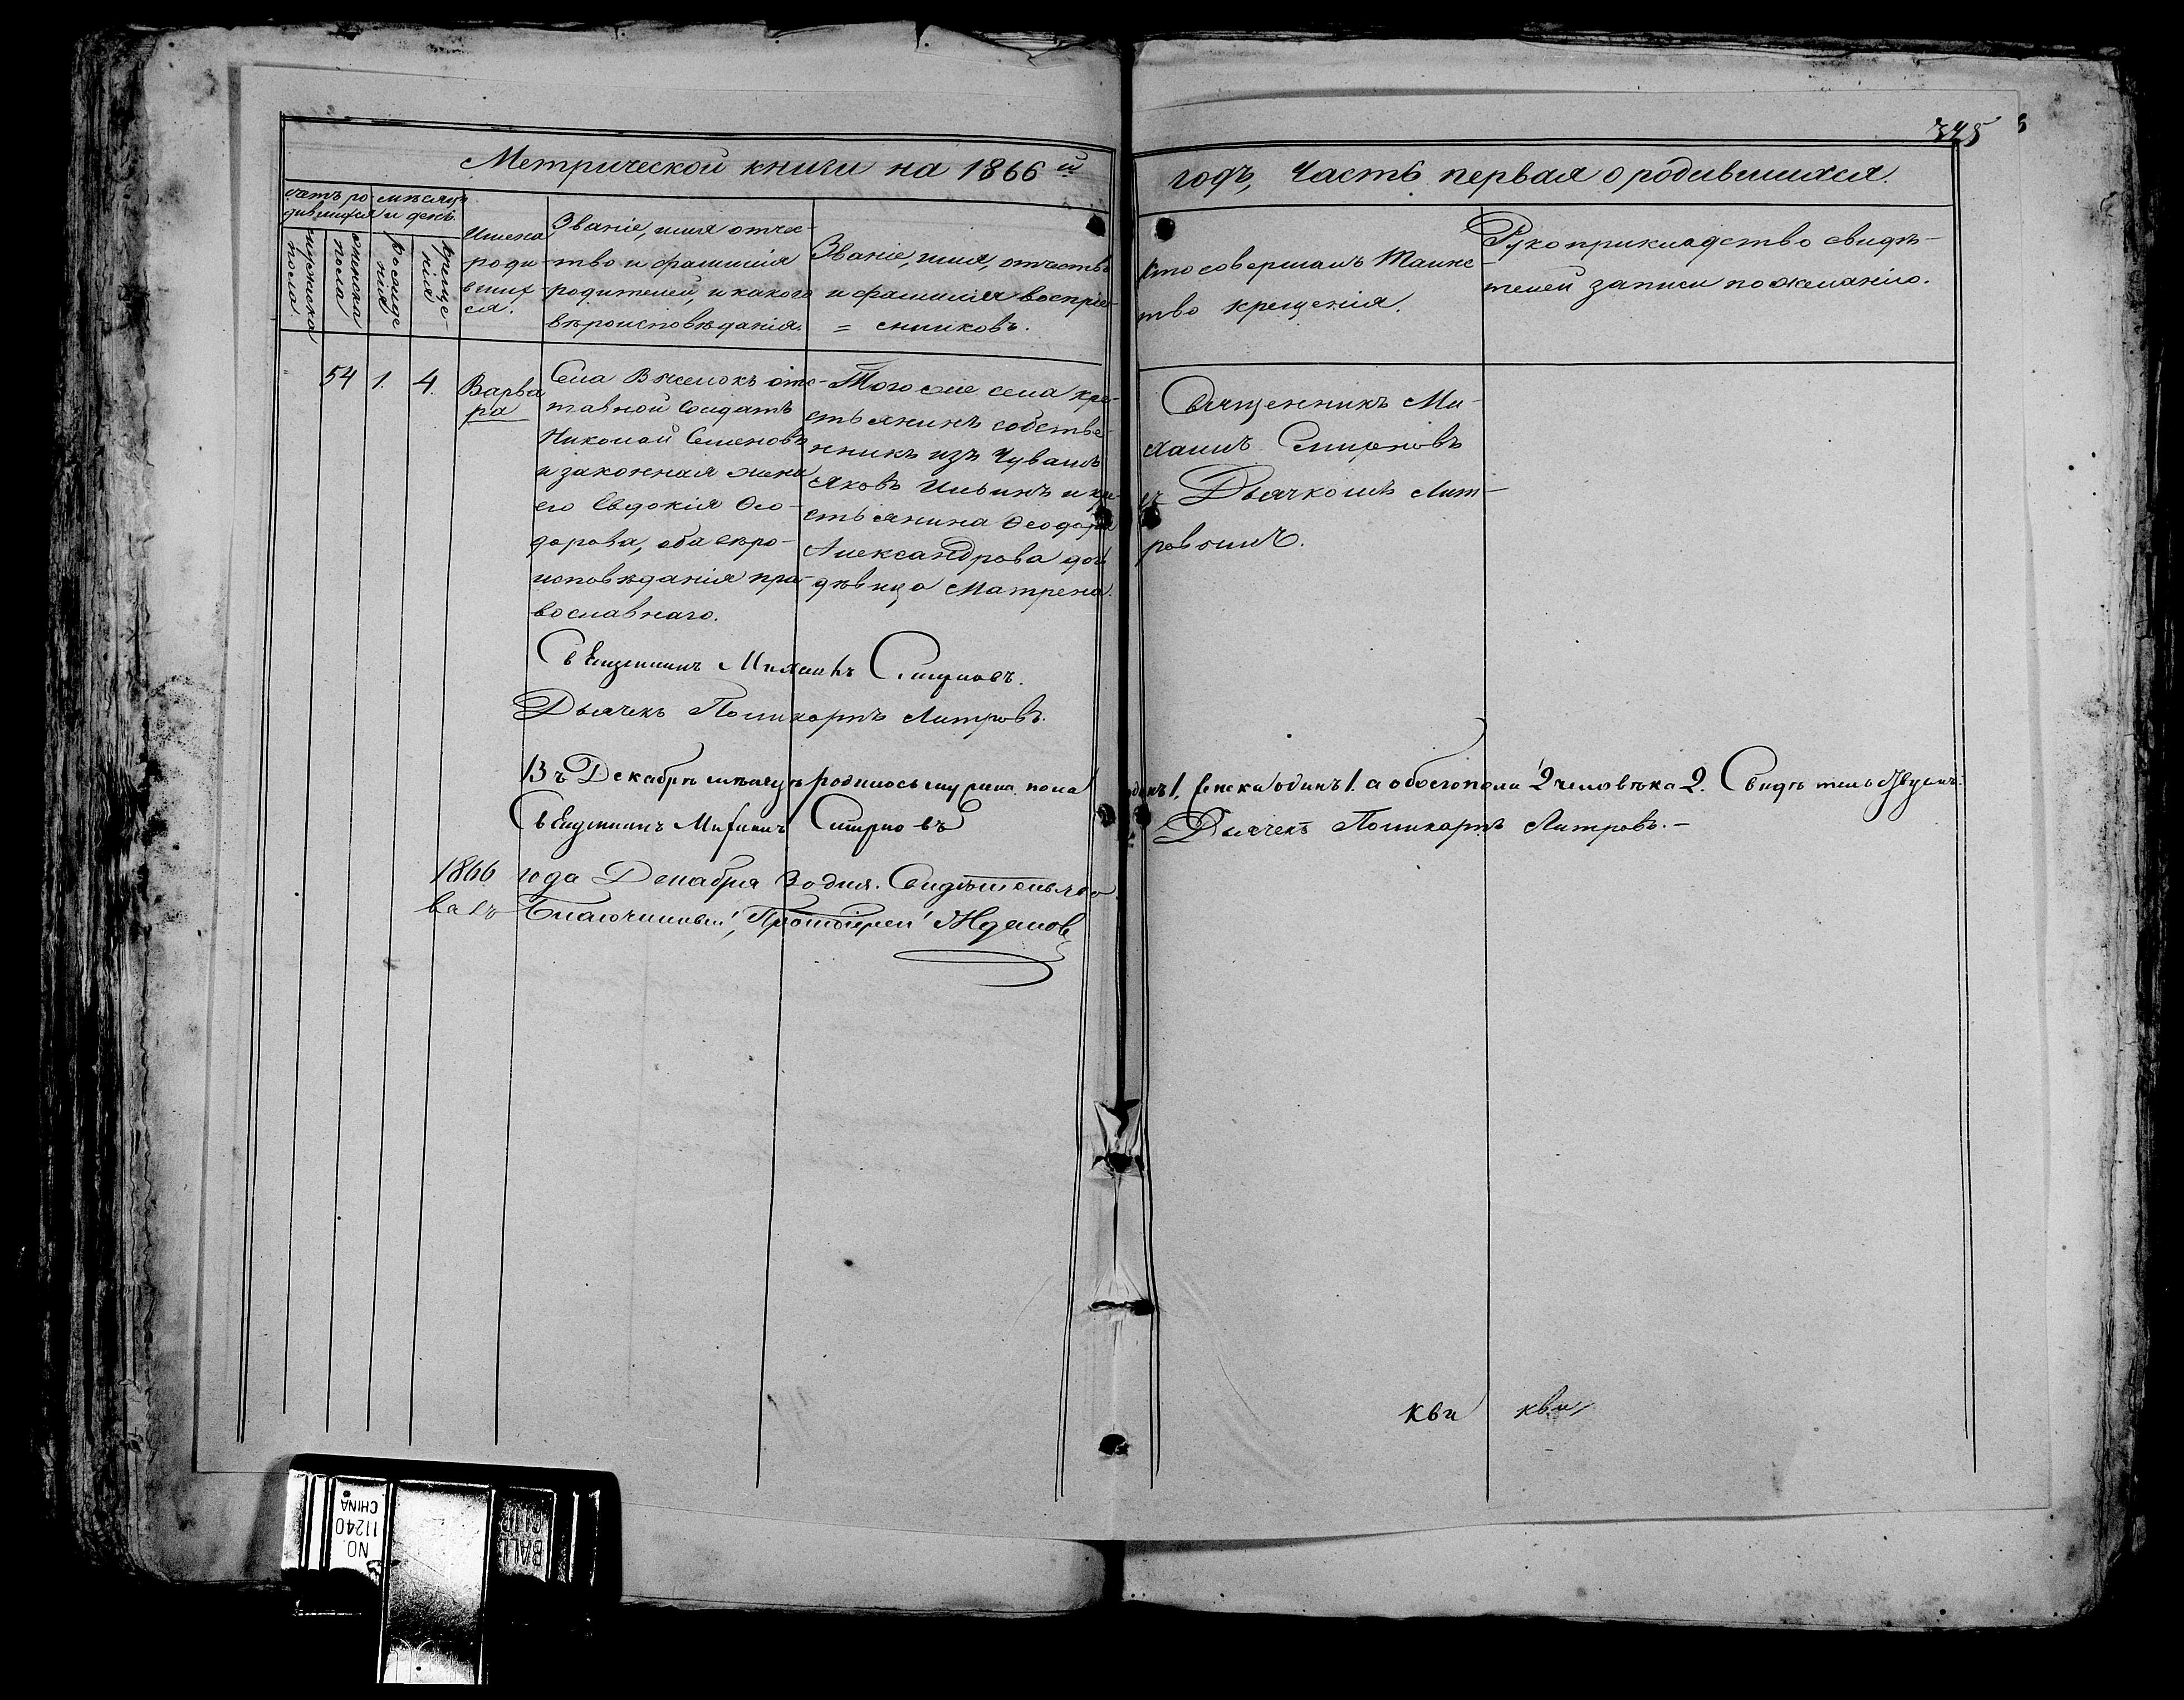 325 5
Метрической книги на 1866й
годъ, Часть первая о родившихся.
Счетъ ро-
дившихся
мѣсяцъ
и день.
мужеска
пола.
женска
пола
рожде
нія
креще-
нія
Имена
роди
вших
ся.
Званіе, имя отче-
тво и фамилія
родителей, и какого
вѣроисповѣданія.
Званіе, имя, отчество
и фамилія воспріе-
= мниковъ.
Кто совершалъ Таинс
тво крещенія.
Рукоприкладство свидѣ-
телей записи по желанію.
54 1. 4.
Варва
ра
Села отс-
тавной Солдатъ
Николай Семеновъ
и законная жена
его Евдокія Ѳео-
дорова, оба вѣро-
исповѣданія пра-
вославнаго.
Того же села кре-
стьянинъ собстве-
нникъ изъ Чувашъ
Яковъ Ильинъ и кре-
стьянина Ѳеодора
Александрова дочь
дѣвица Матрена.
Священникъ Ми-
хаилъ Смирновъ
съ Дьячкомъ Лит-
ровымъ.
Священникъ Михаилъ Смирновъ.
Дьячекъ Поликарпъ Литровъ.
Въ Декабрѣ мѣсяцѣ родилось мужеска пола
одинъ 1, женска одинъ 1. а обоего пола 2 человѣка 2.
Священникъ Михаилъ Смирновъ
Дьячекъ Поликарпъ Литровъ.-
1866 года Декабря 30 дня. Свидѣтельство
валъ Благочинный, Протоіерей Ждановъ
кви кви
NO.
11240
CHINA
BALL
CLIP